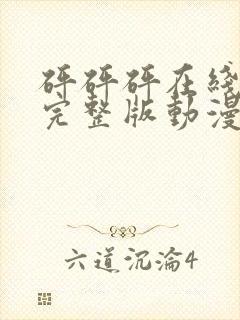 砰砰砰在线
完整版動漫
六道沉淪4